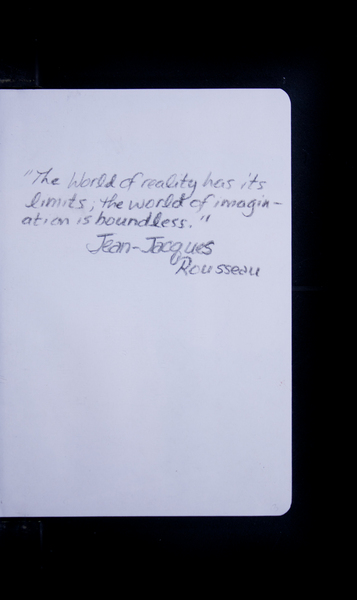 "The World of reality has its
limits; the world of imagin-
ation is boundless."
Jean-Jacques
Rousseau